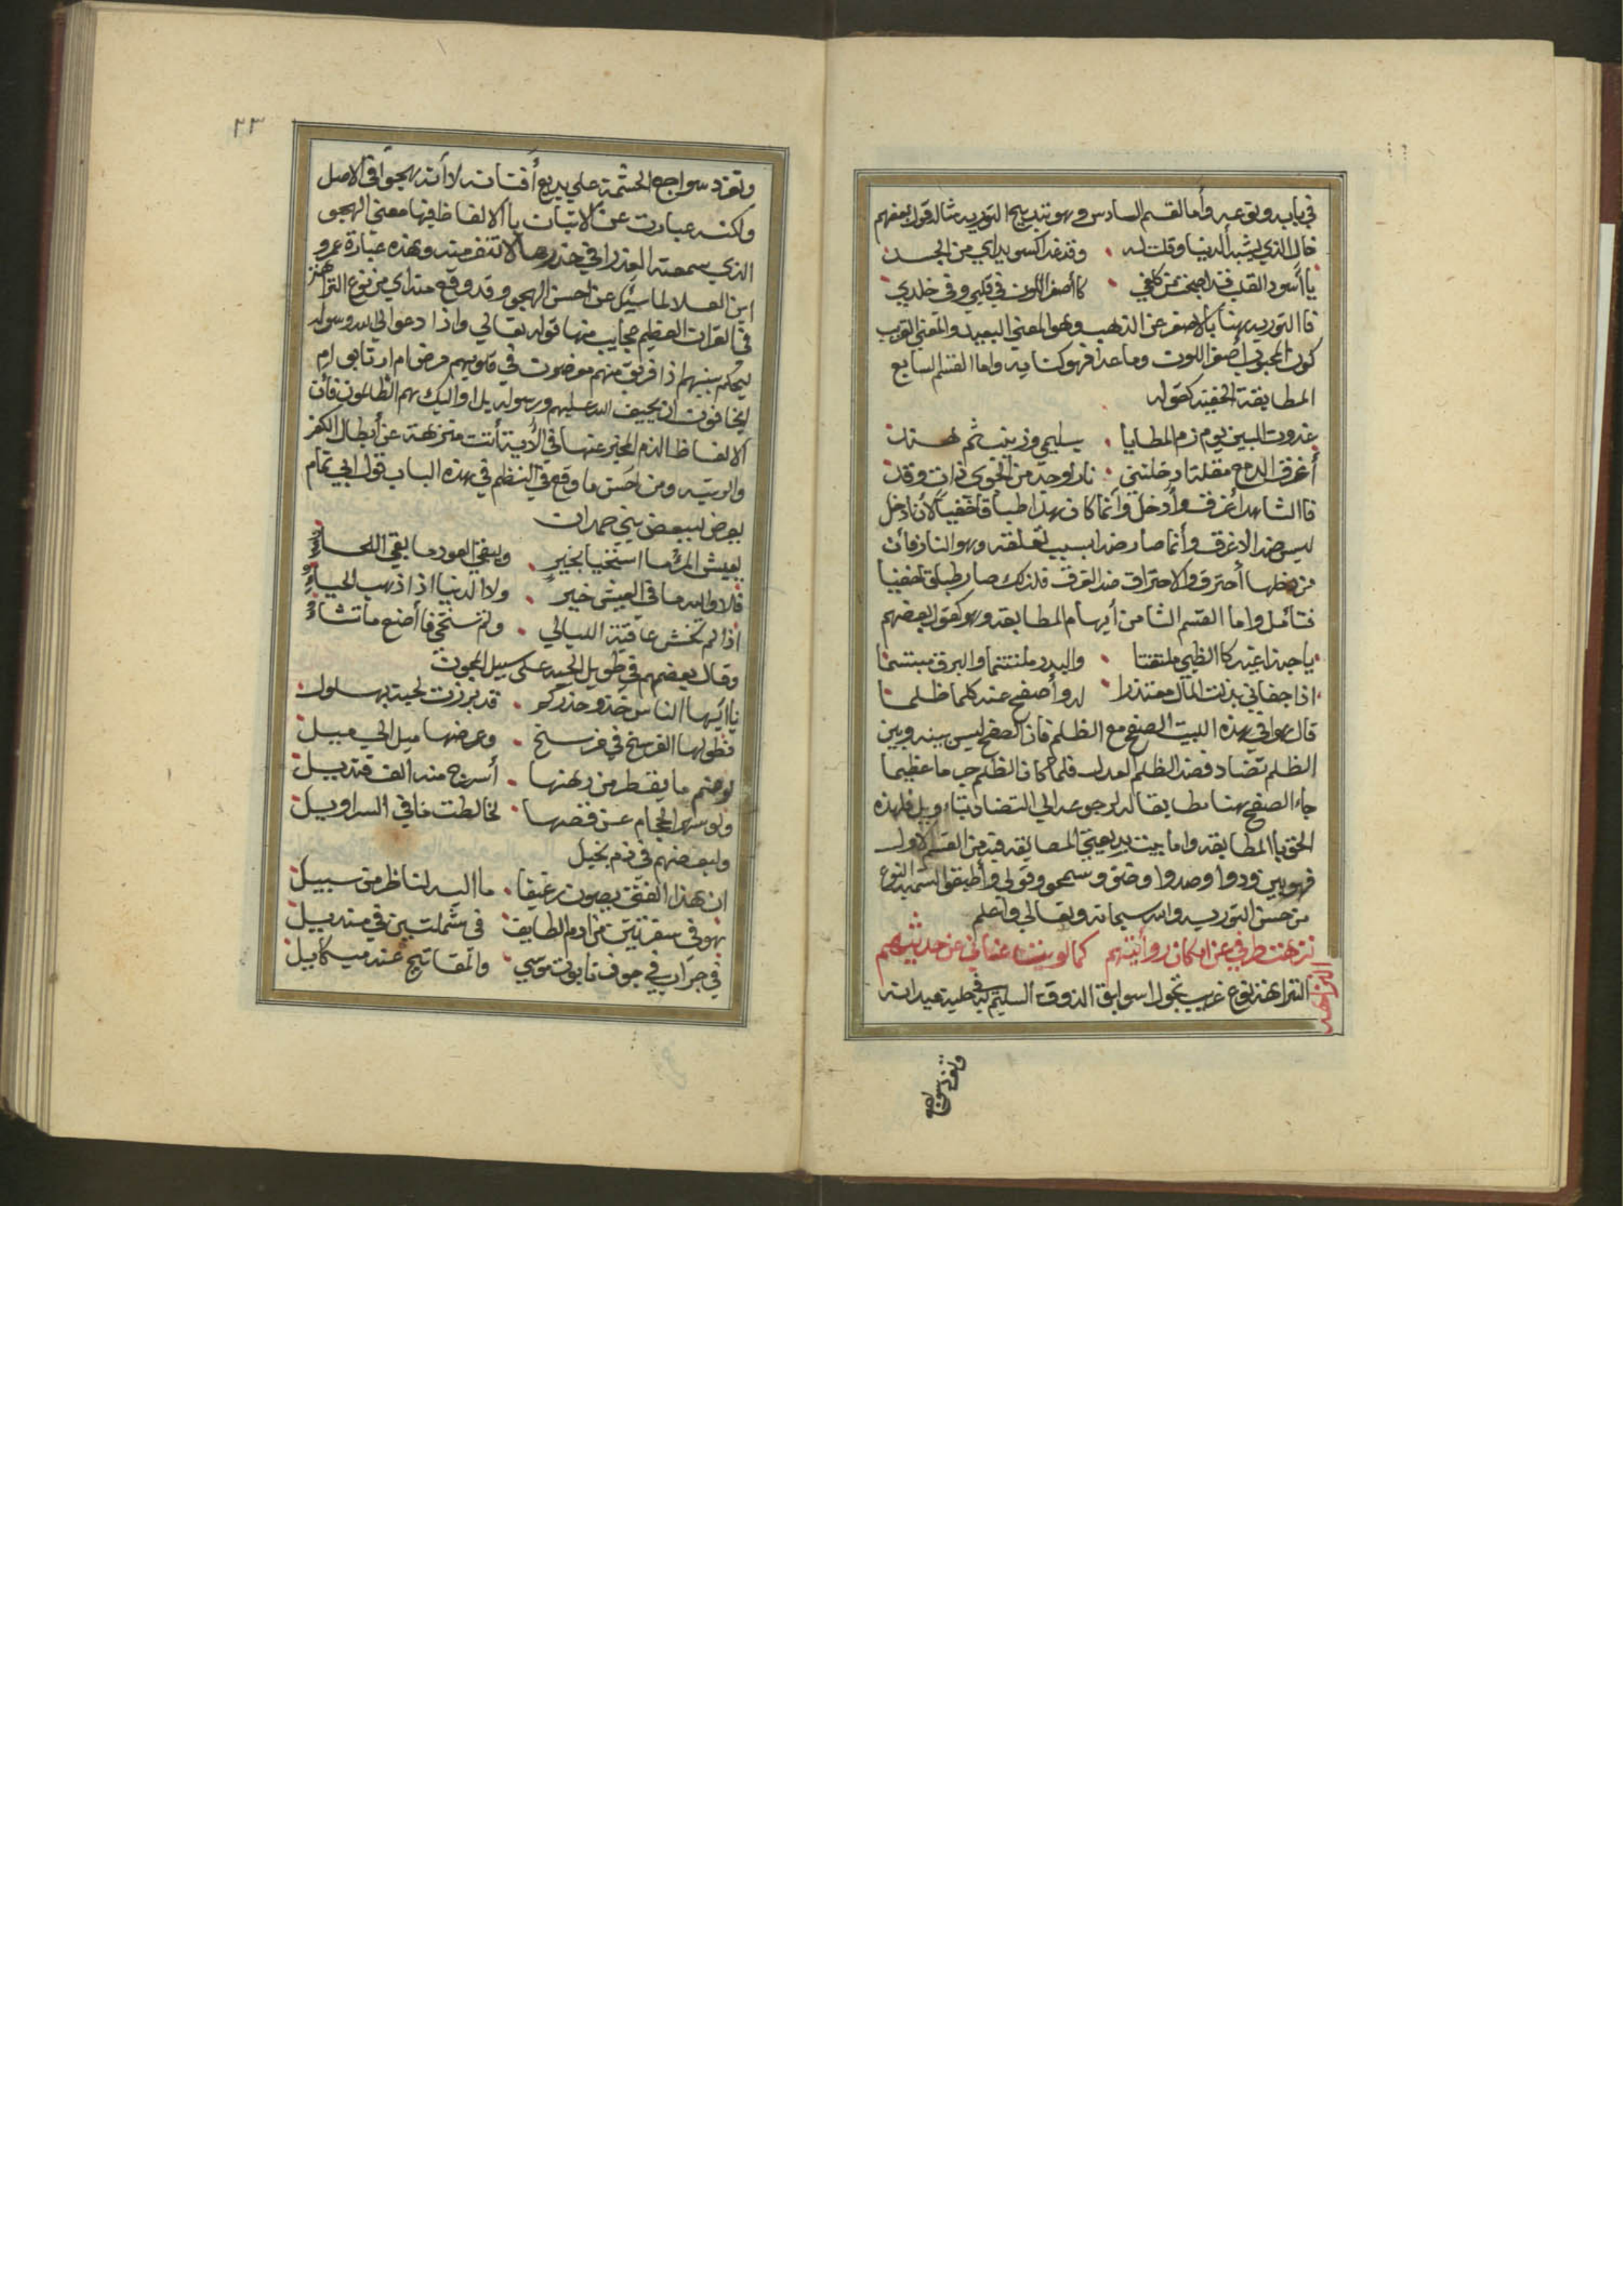 في بابه ونوعه وأما القسم السادس وهو تدبيج التوريه مثاله قول بعضهم
خال الذي يشبه الدنيا وقلت له وقد غدا كسو بداي من الجسد
يا أسود القلب قد اصبحت كلفي كا أصفر اللون في قلبي وفي خلدي
فا التوريه هنا بالاصفر عن الذهب وهو المعني البعيد والمعني القريب
كون المحبوب أصفر اللون وما عدا فهو كنايه واما القسم السابع
المطابقة الخفيه كقوله
غدوت للبين يوم زم المطايا بسليمي وزينب ثم هند
أغرق الدمع مقلة ادخلتني نار لوجد من الجوي ذات وقد
فا الشاهد أغرق وأدخل وأنما كان هذا طباقا خفيا لأن ادخل
ليس ضد الاغرق وأنما صار ضدا بسبب تعلقه وهو النار فأن
من دخلها أحترق والاحتراق ضد الغرق فلذلك صار طباق خفيا
فتأمل واما القسم الثامن أيهام المطابقه وهو كقول بعضهم
ياحبذا غيد كا الظبي ملتفتا والبدر ملتثما والبرق مبتسما
اذا جفاني بذلت المال معتذرا له وأصفح عنه كلما ظلما
قال هوا في هذه البيت الصفح مع الظلم فان الصفح ليس بينه وبين
الظلم تضاد فضد الظلم العدل فلما كان الظلم جرما عظيما
جاء الصفح هنا مطابقا له لرجوعه الي التضاد بتاويل فلهذه
الحق با المطابقه واما بيت بديعيتي المطابقه فيه من القسم الاول
فهو بين ودوا وصدوا وضق وسمحو وقولي وأطبقوا لتسميه النوع
من حسن التوريه والله سبحانه وتعالي وأعلم
نزهت طرفي عن امكان روأيتهم كما لويت عناني عن حديثهم
النزاهه
النزاهة نوع غريب تجول اسوابق الذوق السليم في حلبة ميدانه
وتغرد سواجع
٢٣
وتغرد سواجع الحشمة علي بديع أفنانه لا أنه هجوا في الاصل
ولكنه عبارت عن الاتيان با الالفاظ فيها معني الهجو
الذي سمعته العذرا في خدرها لا تنفر منه وهذه عبارة عمرو
ابن العلا لما سئيل عن احسن الهجو وقد وقع منه اي من نوع النزاهة
في القران العظيم عجايب منها قوله تعالي واذا دعوا الي الله ورسوله
ليحكم بينهم اذا فريق منهم معرضون في قلوبهم مرض ام ارتابو ام
يخافون ان يحيف الله عليهم ورسوله بل اولايك هم الظالمون فأن
الالفاظ الذم المخبر عنها في الآية أتت منزهة عن أبطال الكفر
والريبه ومن أحسن ما وقع في النظم في هذه الباب قول ابي تمام
يعرض لبعض بني حمدان
يعيش المرء ما استحيا بخير ويبقي العود ما بقي اللحاء
فلا والله ما في العيش خير ولا الدنيا اذا ذهب الحياء
اذا لم تخش عاقبة الليالي ولم تستحي فا أصنع ما تشاء
وقال بعضهم في طويل اللحيه علي سبيل المجون
يا أيها الناس خذو حذركم قد برزت لحية بهلول
فطولها الفرسخ في فرسخ وعرضها ميل الي ميل
لو ضم ما يقطر من دهنها أسرج منه الف قنديل
ولو سهي الحجام عن قصها لخالطت ما في السراويل
ولبعضهم في ذم بخيل
ان هذا الفتي يصون رغيفا ما اليه لناظر من سبيل
هو في سفرتين من ادم الطايف في شملتين في منديل
في جراب في جوف تابوت موسي والمفاتيح عند ميكاييل